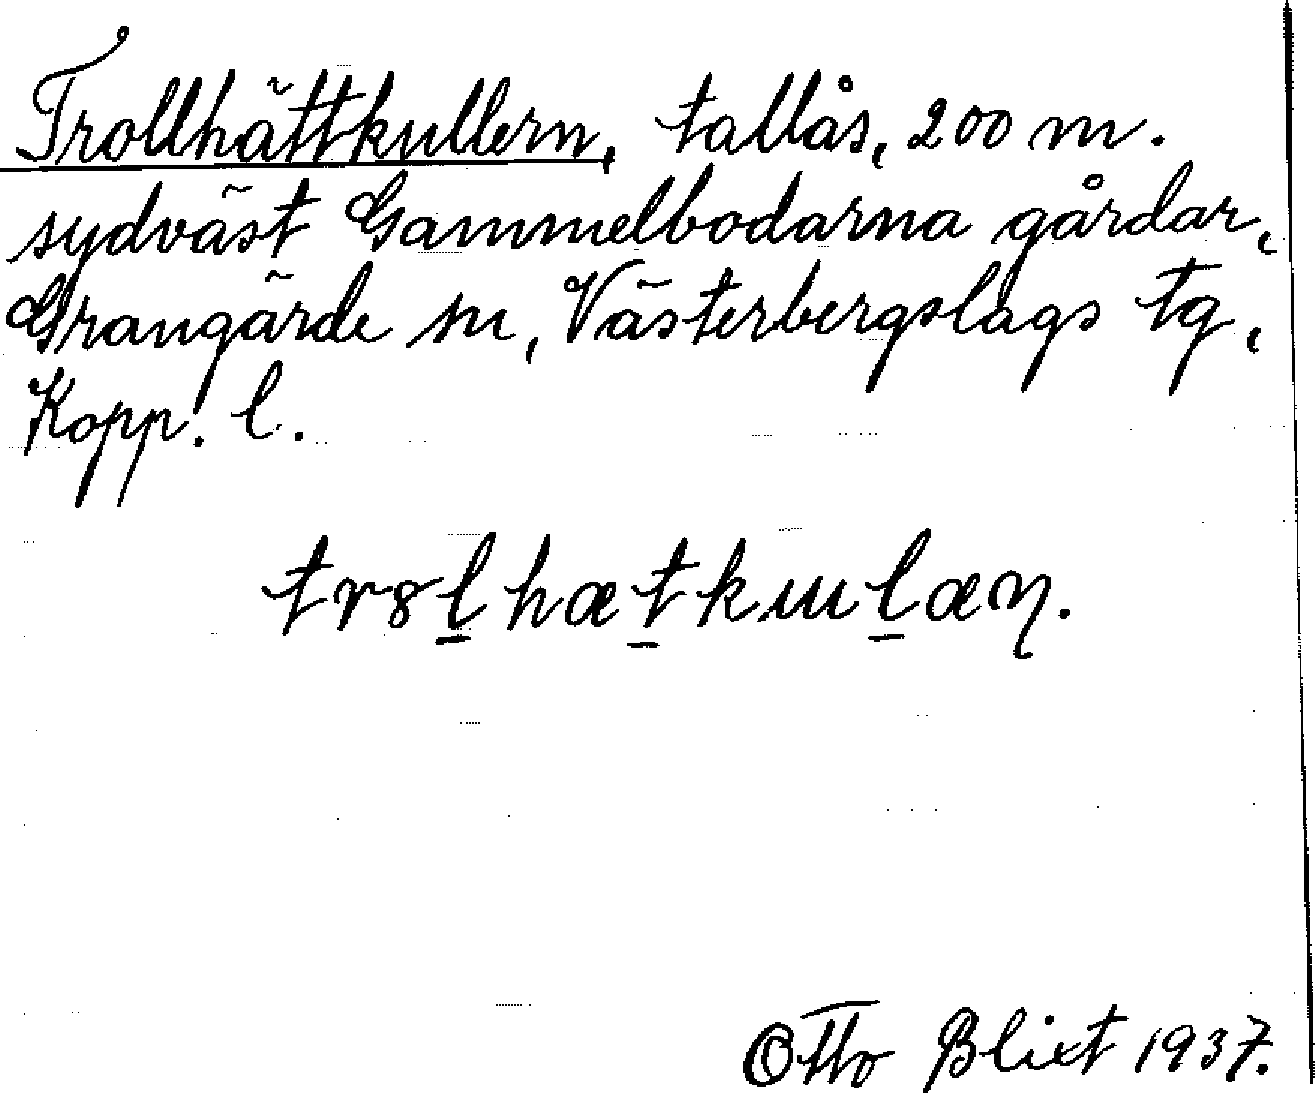 Trollhättkullern, tallås, 200 m.
sydväst Gammelbodarna gårdar,
Grangärde sn, Västerbergslags tg,
Kopp. l.
tr8l̲hæt̲kɯl̲æɳ.
Otto Blixt 1937.